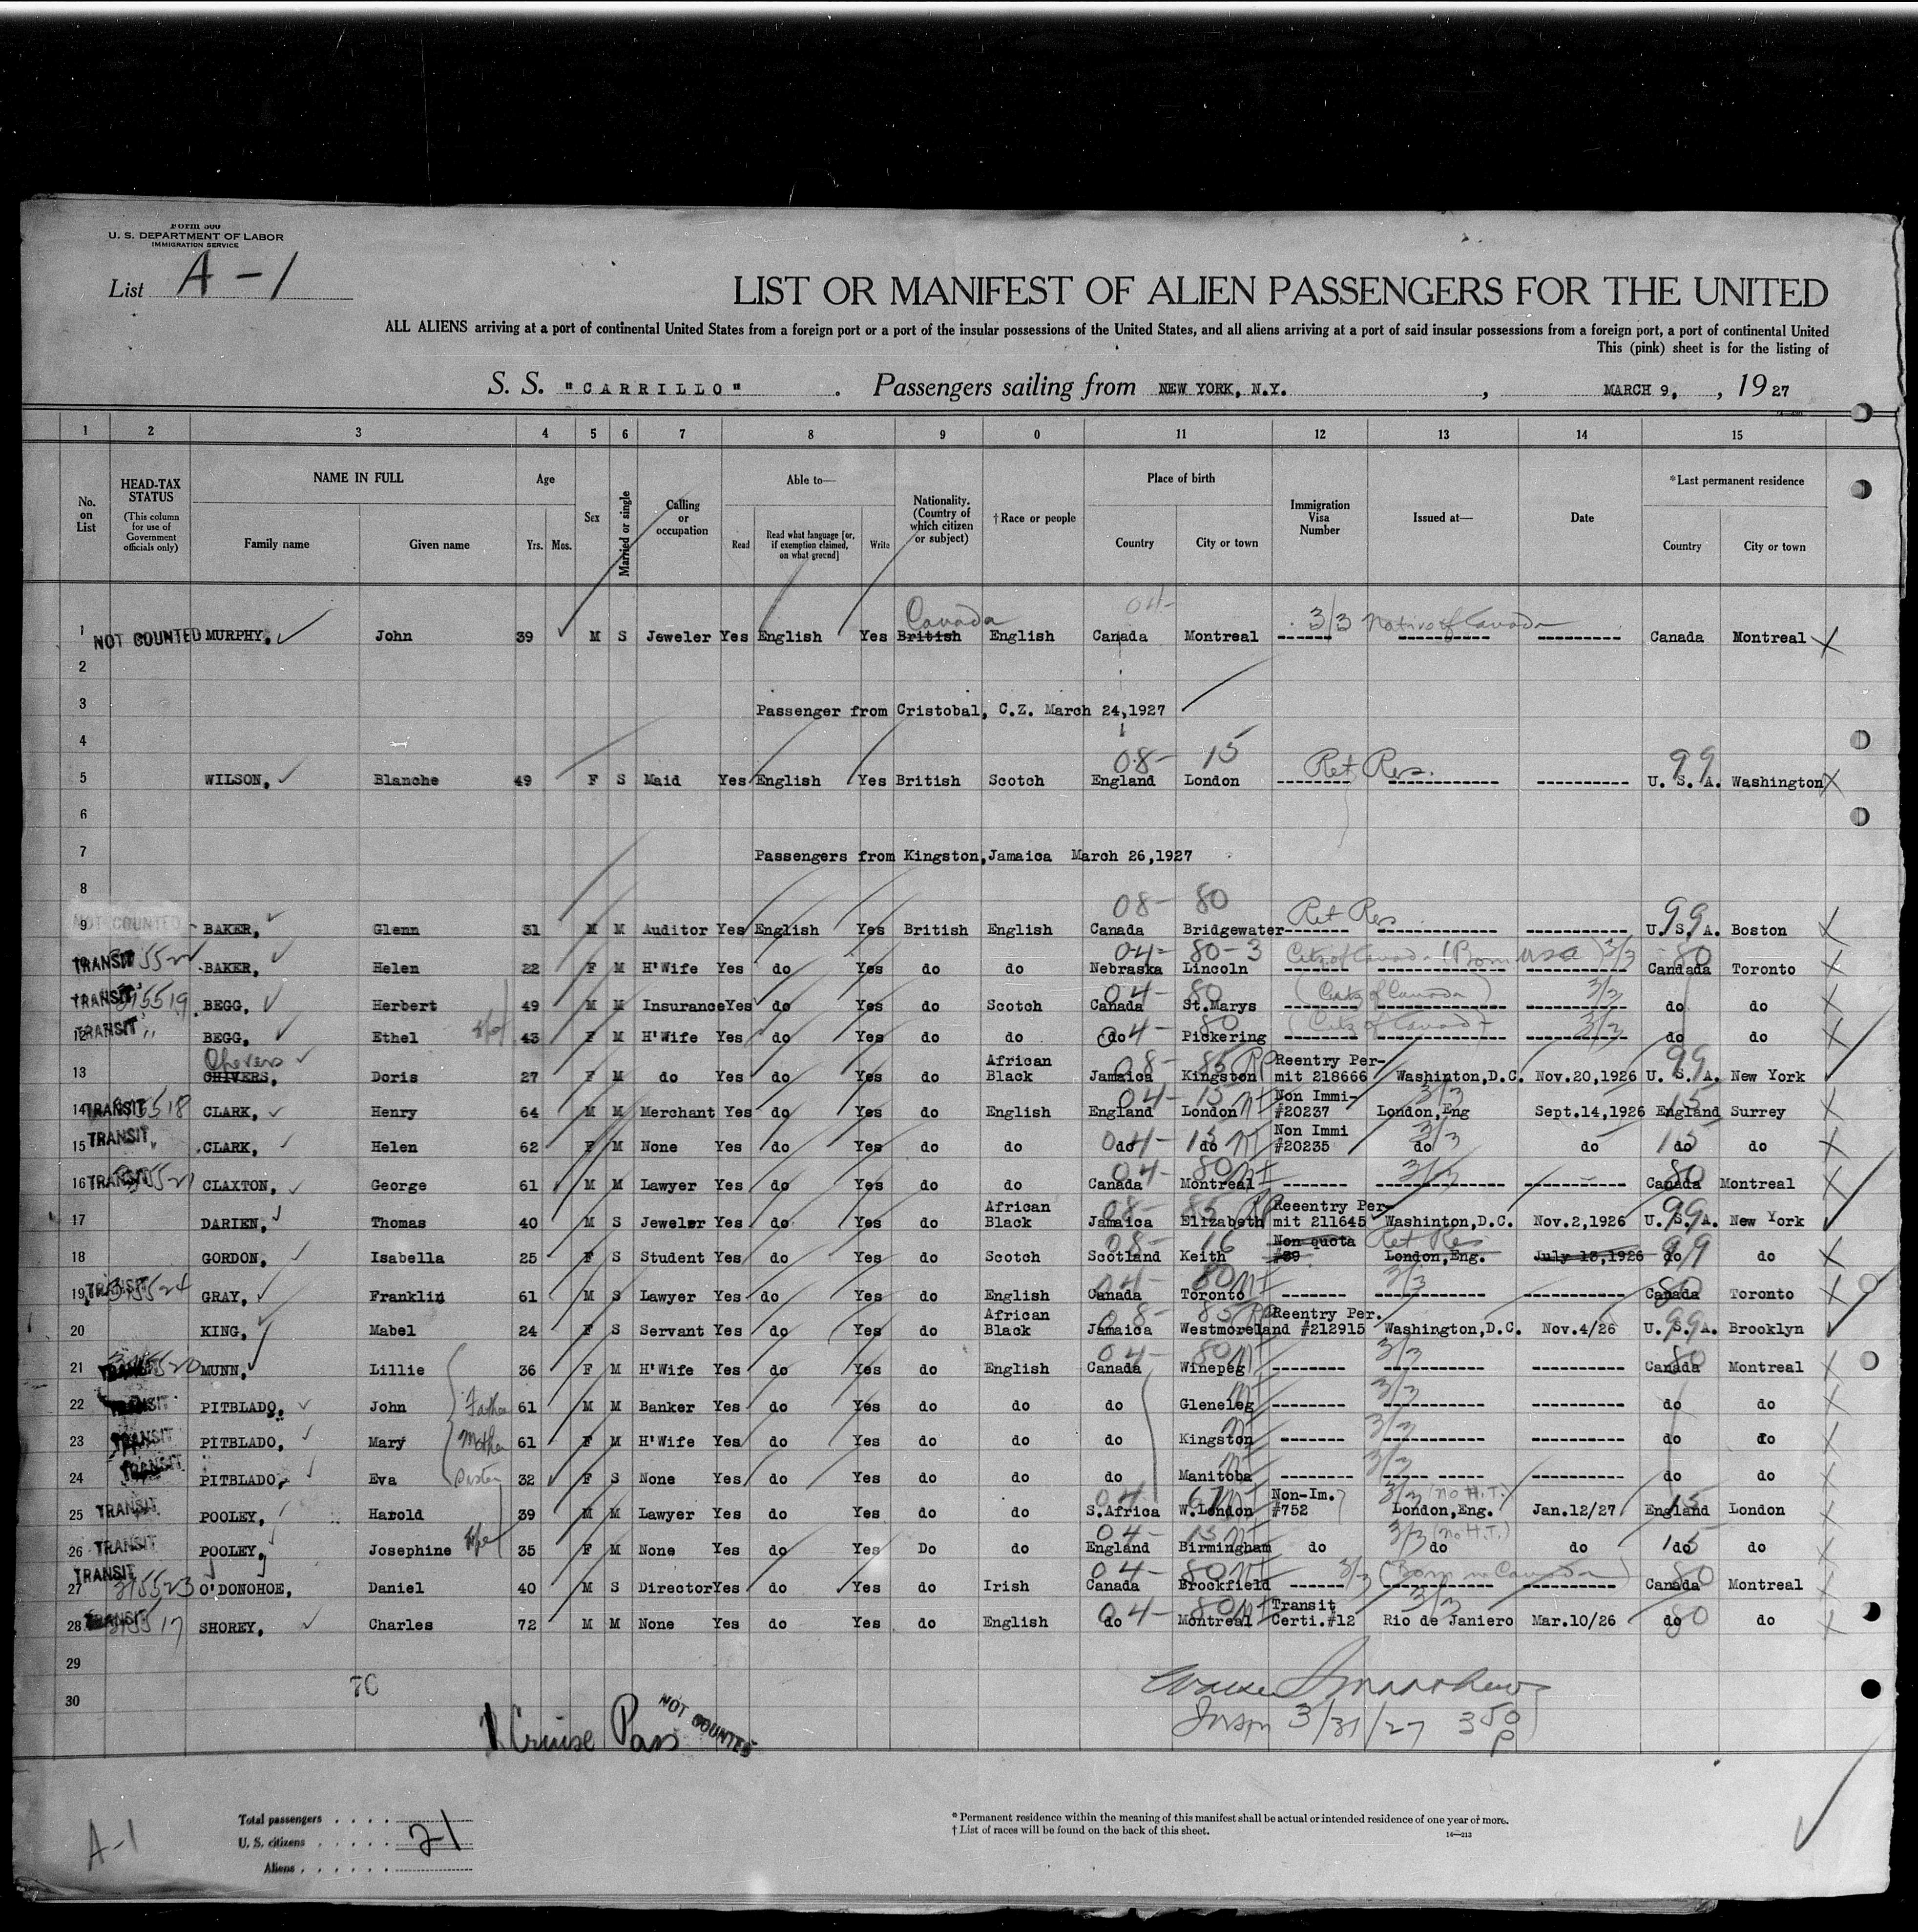 Form 500
U. S. DEPARTMENT OF LABOR
IMMIGRATION SERVICE
List A-1
LIST OR MANIFEST OF ALIEN PASSENGERS FOR THE UNITED
ALL ALIENS arriving at a port of continental United States from a foreign port or a port of the insular possessions of the United States, and all aliens arriving at a port of said insular possessions from a foreign port, a port of continental United
This (pink) sheet is for the listing of
S. S. "CARRILLO" . Passengers sailing from NEW YORK, N.Y. , MARCH 9, , 19 27
1 2 3 4 5 6 7 8 9 0 11 12 13 14 15
No. on List
HEAD-TAX STATUS (This column for use of Government officials only)
NAME IN FULL
Family name Given name
Age Yrs. Mos.
Sex
Married or single
Calling or occupation
Able to—
Read Read what language [or, if exemption claimed, on what ground] Write
Nationality. (Country of which citizen or subject)
†Race or people
Place of birth
Country City or town
Immigration Visa Number
Issued at—
Date
*Last permanent residence
Country City or town
Canada 04- 3/3 Native of Canada
1 NOT COUNTED MURPHY, John 39 M S Jeweler Yes English Yes British English Canada Montreal ------ ---------- --------- Canada Montreal X
2
3 Passenger from Cristobal, C.Z. March 24,1927
4
08- 15 Ret Res. 99
5 WILSON, Blanche 49 F S Maid Yes English Yes British Scotch England London -------- ------------ ---------- U. S. A. Washington X
6
7 Passengers from Kingston,Jamaica March 26,1927
8
08- 80 Ret Res 99
9 NOT COUNTED BAKER, Glenn 31 M M Auditor Yes English Yes British English Canada Bridgewater ------- ------------- ----------- U. S. A. Boston
04- 80-3 Citz of Canada (Born USA) 3/3 80
TRANSIT BAKER, Helen 22 F M H'Wife Yes do Yes do do Nebraska Lincoln ------- -------------- ----------- Candada Toronto X
04- 80 (Citz of Canada) 3/3
TRANSIT 315519 BEGG, Herbert 49 M M Insurance Yes do Yes do Scotch Canada St.Marys -------- -------------- ----------- do do X
04- 80 (Citz of Canada) 3/3
12 TRANSIT " BEGG, Ethel 43 F M H'Wife Yes do Yes do do do Pickering -------- -------------- ----------- do do X
Chevers 08- 85 RP 99
13 CHIVERS, Doris 27 F M do Yes do Yes do African Black Jamaica Kingston Reentry Permit 218666 Washinton,D.C. Nov.20,1926 U. S. A. New York
04- 15 3/3 15
14 TRANSIT 315518 CLARK, Henry 64 M M Merchant Yes do Yes do English England London Non Immi- #20237 London,Eng Sept.14,1926 England Surrey X
04- 15 3/3 15
15 TRANSIT " CLARK, Helen 62 F M None Yes do Yes do do do do Non Immi #20235 do do do do X
04- 80 3/3 80
16 TRANSIT 315521 CLAXTON, George 61 M M Lawyer Yes do Yes do do Canada Montreal ------- -------------- ----------- Canada Montreal X
08- 85 RP 99
17 DARIEN, Thomas 40 M S Jeweler Yes do Yes do African Black Jamaica Elizabeth Reeentry Permit 211645 Washinton,D.C. Nov.2,1926 U. S. A. New York
08- 16 Ret Res 99
18 GORDON, Isabella 25 F S Student Yes do Yes do Scotch Scotland Keith Non quota #39 London,Eng. July 13,1926 do do X
04- 80 3/3 80
19 TRANSIT 315524 GRAY, Franklin 61 M S Lawyer Yes do Yes do English Canada Toronto -------- -------------- ----------- Canada Toronto X
08- 85 RP 99
20 KING, Mabel 24 F S Servant Yes do Yes do African Black Jamaica Westmoreland Reentry Per. #212915 Washington,D.C. Nov.4/26 U. S. A. Brooklyn
04- 80 3/3 80
21 TRANSIT 315520 MUNN, Lillie 36 F M H'Wife Yes do Yes do English Canada Winepeg -------- ------------- ----------- Canada Montreal X
3/3
22 TRANSIT PITBLADO, John Father 61 M M Banker Yes do Yes do do do Gleneleg -------- ------------- ----------- do do X
3/3
23 TRANSIT PITBLADO, Mary Mother 61 F M H'Wife Yes do Yes do do do Kingston ------- ------------- ----------- do do X
3/3
24 TRANSIT PITBLADO, Eva Sister 32 F S None Yes do Yes do do do Manitoba -------- ----- ----- ----------- do do X
04 67 3/3 (no H.T.) 15
25 TRANSIT POOLEY, Harold 39 M M Lawyer Yes do Yes do do S.Africa W.London Non-Im. #752 London,Eng. Jan.12/27 England London X
04- 15 3/3 (no H.T.) 15
26 TRANSIT POOLEY, Josephine Wife 35 F M None Yes do Yes Do do England Birmingham do do do do do X
04- 80 3/3 (Born in Canada) 80
27 TRANSIT 315523 O'DONOHOE, Daniel 40 M S Director Yes do Yes do Irish Canada Brockfield ------ ------------- ---------- Canada Montreal X
04- 80 3/3 80
28 TRANSIT 315517 SHOREY, Charles 72 M M None Yes do Yes do English do Montreal Transit Certi.#12 Rio de Janiero Mar.10/26 do do X
29
30
1 Cruise Pass NOT COUNTED
Insp 3/31/27 3 50 P
Total passengers . . . .
U. S. citizens . . . . . 21
Aliens . . . . . .
A-1
* Permanent residence within the meaning of this manifest shall be actual or intended residence of one year or more.
† List of races will be found on the back of this sheet.
14—213